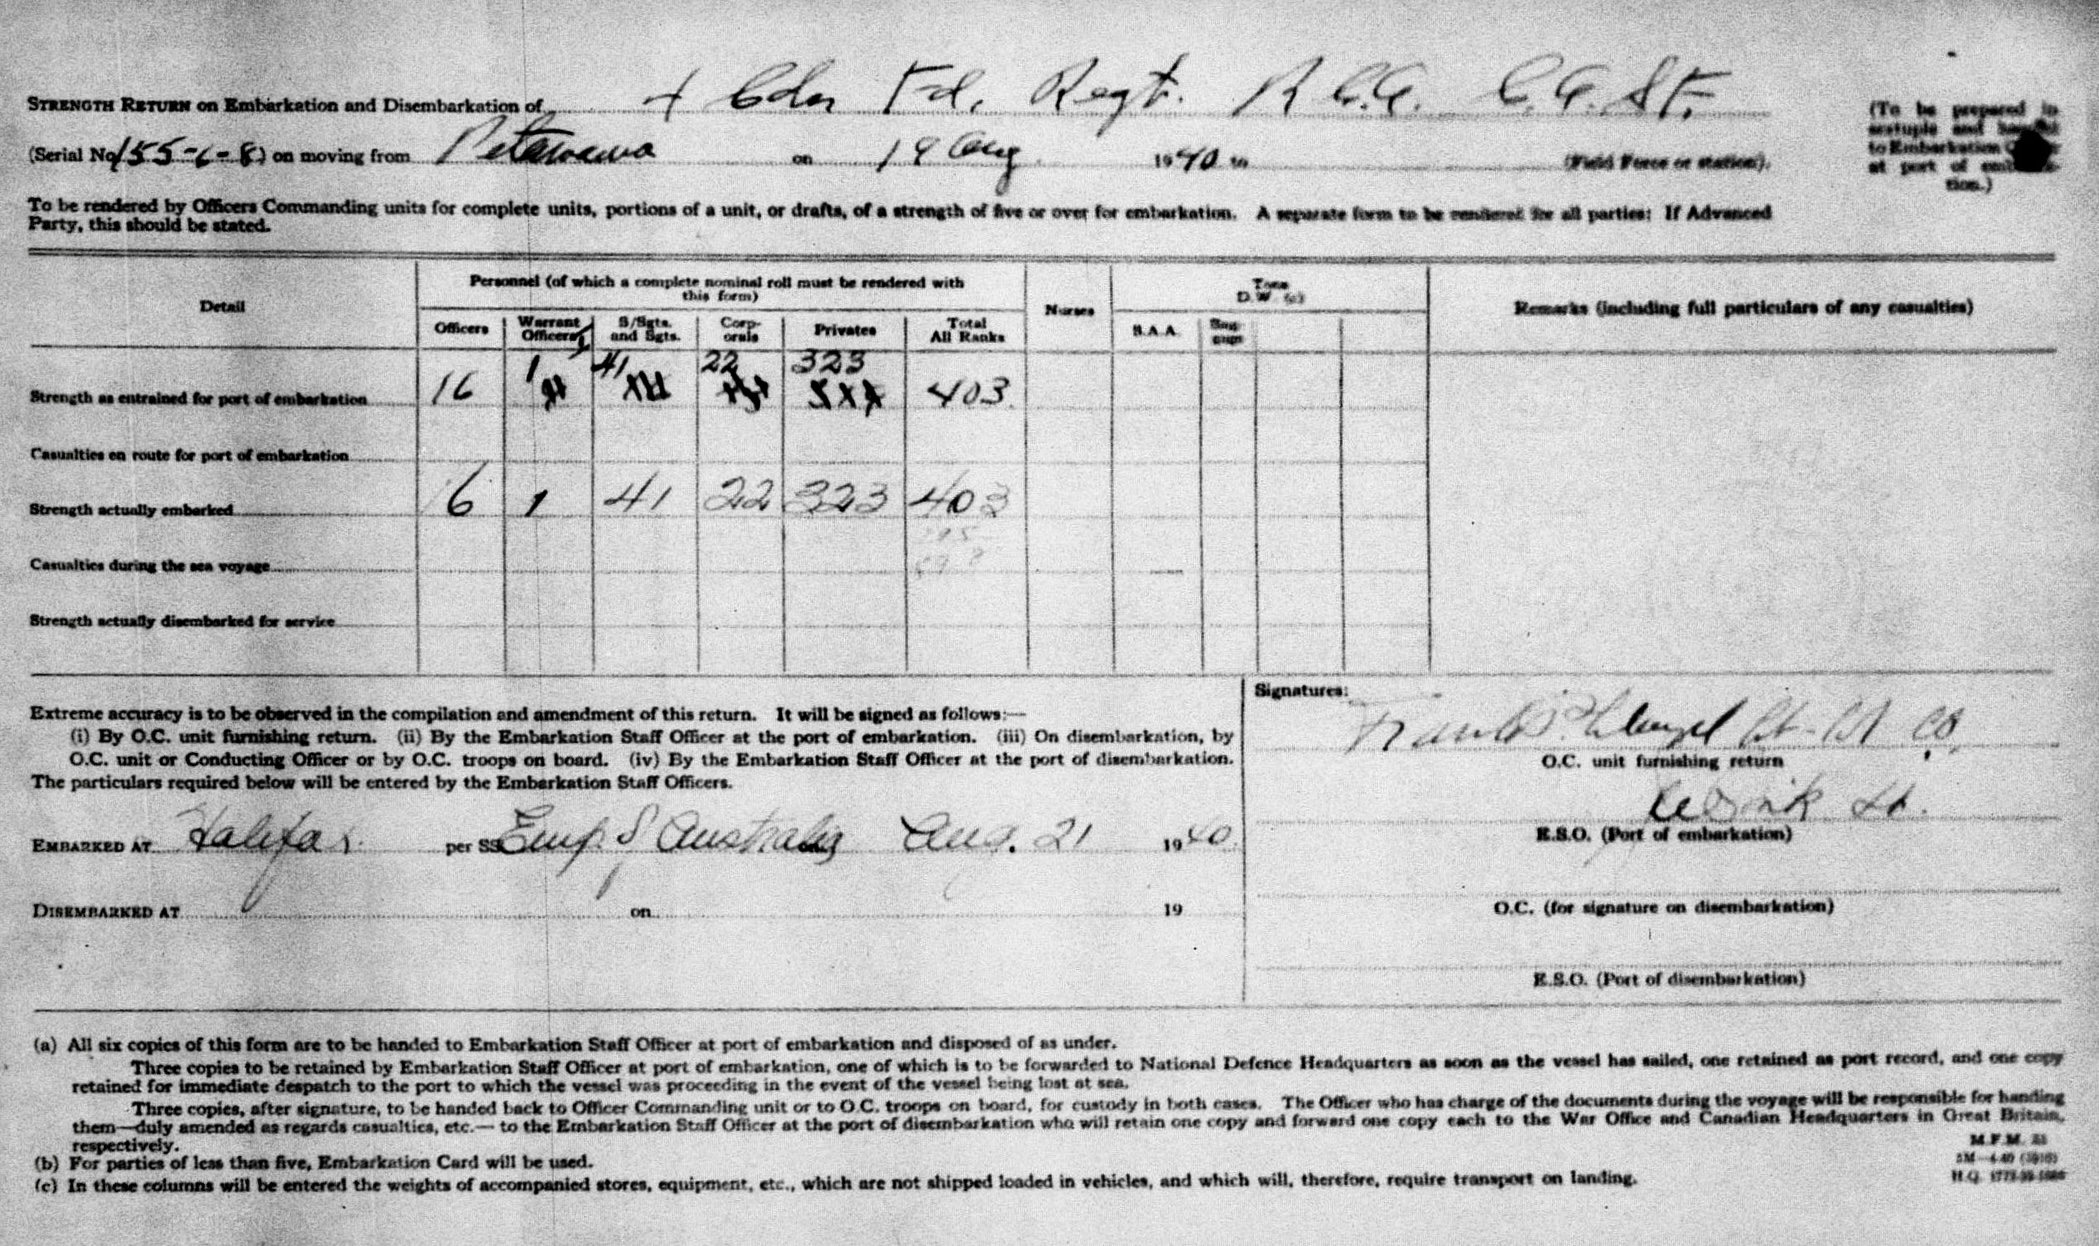 STRENGTH RETURN on Embarkation and Disembarkation of 4 Cdn Fd. Regt. R.C.A. C.A.S.F.
(Serial No 155-1-8) on moving from Petawawa on 19 Aug 1940 to (Field Force or station).
(To be prepared in
sextuple and
to Embarkation
at port of
tion.)
To be rendered by Officers Commanding units for complete units, portions of a unit, or drafts, of a strength of five or over for embarkation. A separate form to be rendered for all parties: If Advanced
Party, this should be stated.
Detail
Personnel (of which a complete nominal roll must be rendered with
this form)
Nurses
Tons
D.W. (c)
Remarks (including full particulars of any casualties)
Officers Warrant Officers S/Sgts. and Sgts. Corp-orals Privates Total All Ranks S.A.A.
1 41 22 323
Strength as entrained for port of embarkation 16 403
Casualties en route for port of embarkation
Strength actually embarked 16 1 41 22 323 403
Casualties during the sea voyage
Strength actually disembarked for service
Extreme accuracy is to be observed in the compilation and amendment of this return. It will be signed as follows:—
(i) By O.C. unit furnishing return. (ii) By the Embarkation Staff Officer at the port of embarkation. (iii) On disembarkation, by
O.C. unit or Conducting Officer or by O.C. troops on board. (iv) By the Embarkation Staff Officer at the port of disembarkation.
The particulars required below will be entered by the Embarkation Staff Officers.
EMBARKED AT Halifax per SS Emp of Australia Aug. 21 1940
DISEMBARKED AT on 19
Signatures:
Lt-Col
O.C. unit furnishing return
Lt.
E.S.O. (Port of embarkation)
O.C. (for signature on disembarkation)
E.S.O. (Port of disembarkation)
(a) All six copies of this form are to be handed to Embarkation Staff Officer at port of embarkation and disposed of as under.
Three copies to be retained by Embarkation Staff Officer at port of embarkation, one of which is to be forwarded to National Defence Headquarters as soon as the vessel has sailed, one retained as port record, and one copy
retained for immediate despatch to the port to which the vessel was proceeding in the event of the vessel being lost at sea.
Three copies, after signature, to be handed back to Officer Commanding unit or to O.C. troops on board, for custody in both cases. The Officer who has charge of the documents during the voyage will be responsible for handing
them—duly amended as regards casualties, etc.—to the Embarkation Staff Officer at the port of disembarkation who will retain one copy and forward one copy each to the War Office and Canadian Headquarters in Great Britain,
respectively.
(b) For parties of less than five, Embarkation Card will be used.
(c) In these columns will be entered the weights of accompanied stores, equipment, etc., which are not shipped loaded in vehicles, and which will, therefore, require transport on landing.
M.F.M.
H.Q.